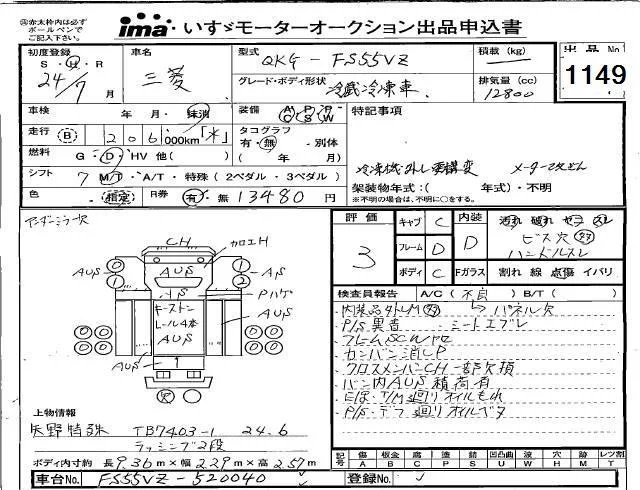 ㊟赤太枠内は必ず
ボールペンで
ご記入下さい。
ima いすゞモーターオークション出品申込書
初度登録 S・H・R 24/7月
車名 三菱
型式 QKG - FS55VZ
グレード・ボディ形状 冷蔵冷凍車
積載 (kg)
排気量 (cc) 12800
出品 No 1149
車検 年 月・抹消
装備 AC PS PW
特記事項
走行 B 206 000km「不」
タコグラフ 有・無・別体 ( 年 月)
燃料 G・D・HV 他( )
シフト 7 MT・A/T・特殊 (2ペダル・3ペダル)
色 ・指定 R券 有・無 13480 円
冷凍機外し要構変
架装物年式:( 年式)・不明
※不明の場合は、不明に○をする。
アンダーミラー欠
評価 3
キャブ C 内装 D
フレーム D
ボディ C Fガラス
汚れ 破れ ヤニ スレ
ビス穴 多
ハンドルスレ
割れ 線 点傷 イバリ
検査員報告 A/C(不良) B/T( )
内装品外しM 多 → パネル欠
P/S異音・シートエブレ
フレームSCWサセ
カンバン消しP
クロスメンバーCH一部欠損
バン内AUS積荷有
E/G・T/M廻りオイルもれ
P/S・デフ廻りオイルベタ
CH カロエH
AUS 0 0 AUS 1 2 A/S
Pハゲ
キーストン
レール4本
AUS
AUS
AUS
欠
上物情報
矢野特殊 TB7403-1 24.6
ラッシング2段
ボディ内寸約 長9.36m×幅2.29m×高2.57m
記号 傷A 板金B 腐C 塗P 錆S 凹凸曲U 波W 穴H 歩M レツ割T
車台No. FS55VZ-520040
登録No.